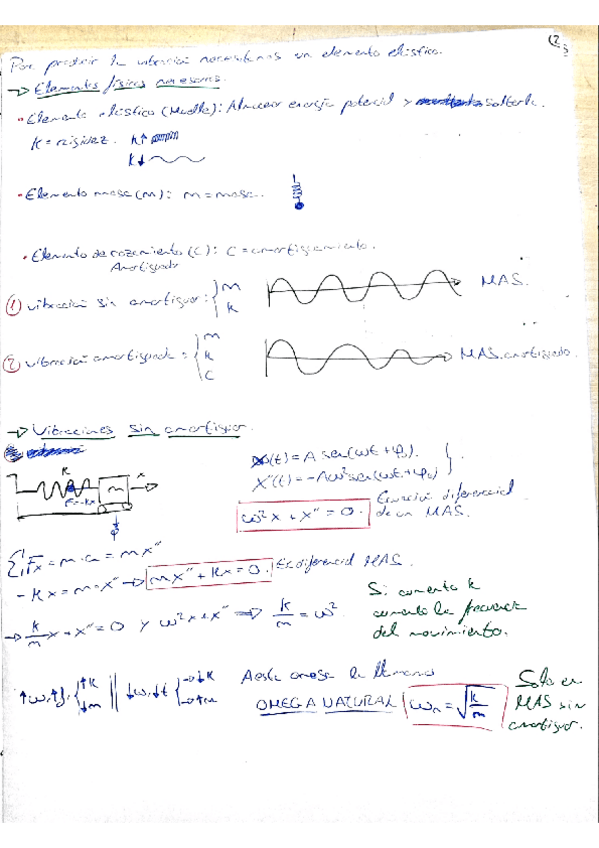 Para producir la vibración necesitamos un elemento elástico.
→ Elementos físicos necesarios.
• Elemento elástico (Muelle): Almacenar energía potencial y soltarla.
K = rigidez. K↑
K↓
• Elemento masa (m): m = masa.
• Elemento de rozamiento (C): C = amortiguamiento.
Amortiguador
① Vibración sin amortiguar: { m k MAS.
② Vibración amortiguada: { m k c MAS amortiguado.
→ Vibraciones sin amortiguar.
K m x
F=-kx
x(t) = A sen(ωt + φ₀)
x''(t) = -Aω² sen(ωt + φ₀)
ω²x + x'' = 0. Ecuación diferencial de un MAS.
ΣFx = m·a = mx''
-Kx = m·x'' → mx'' + Kx = 0. Ec diferencial MAS.
→ k/m x + x'' = 0 y ω²x + x'' ⇒ k/m = ω²
Si aumenta k
aumenta la frecuencia
del movimiento.
↑ω,↑f. { ↑k ↓m || ↓ω,↓f { →↓k →↑m
A esta omega la llamamos
OMEGA NATURAL ωn = √k/m
Solo en
MAS sin
amortiguar.